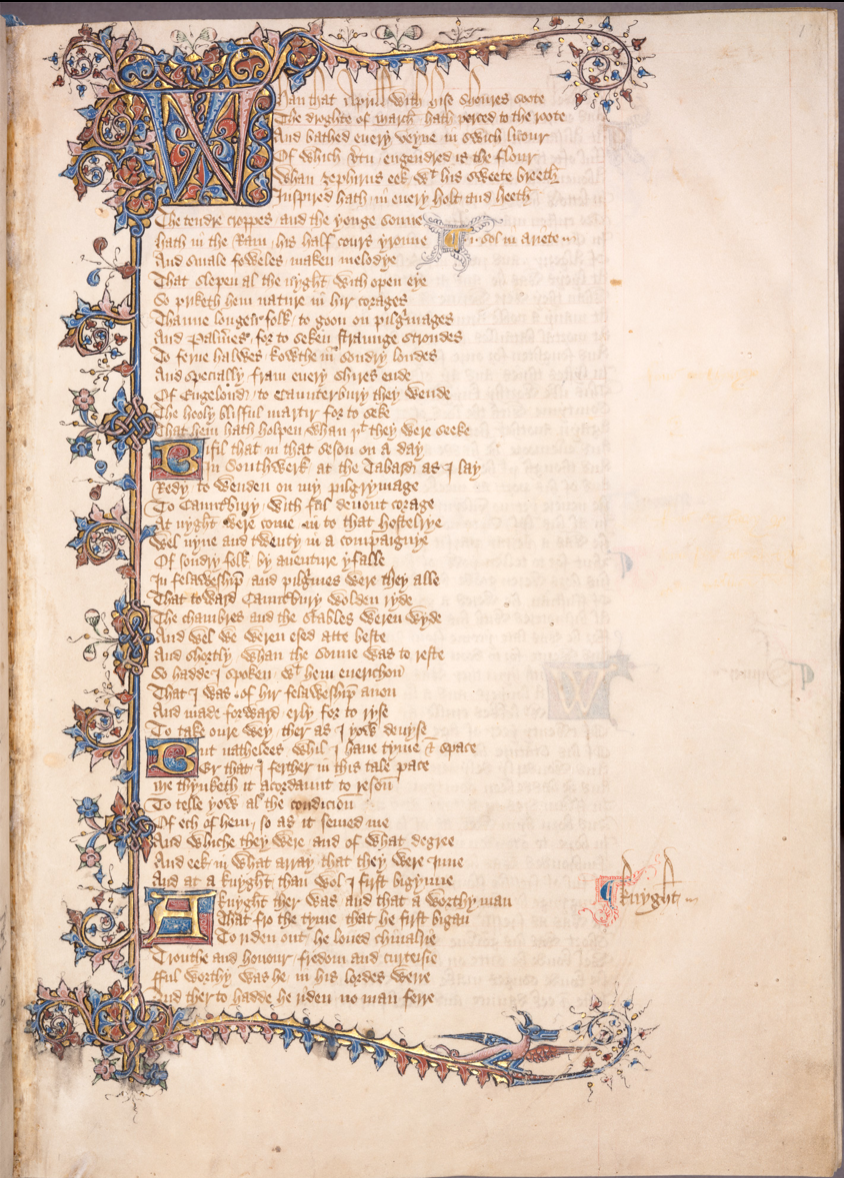 1
Whan that Aprill with hise shoures soote
The droghte of march hath perced to the roote
And bathed euery veyne in swich licour
Of which vtu engendred is the flour
Whan zephirus eek wt his sweete breeth
Inspired hath in euery holt and heeth
The tendre croppes and the yonge sonne
hath in the Ram his half cours yronne
.i. sol in ariete
And smale foweles maken melodye
That slepen al the nyght with open eye
So priketh hem nature in hir corages
Thanne longen folk to goon on pilgrimages
And Palmeres for to seken straunge strondes
To ferne halwes kowthe in sondry londes
And specially fram euery shires ende
Of Engelond to Caunterbury they wende
The hooly blisful martir for to seke
That hem hath holpen whan þt they were seeke
Bifil that in that seson on a day
In Southwerk at the Tabard as I lay
Redy to wenden on my pilgrymage
To Cauntbury with ful deuout corage
At nyght were come in to that hostelrye
Wel nyne and twenty in a compaignye
Of sondry folk by auenture yfalle
In felaweshipe and pilgrimes were they alle
That toward Cauntbury wolden ryde
The chambres and the stables weren wyde
And wel we weren esed atte beste
And shortly whan the sonne was to reste
So hadde I spoken wt hem euerichon
That I was of hir felaweshipe anon
And made forward erly for to ryse
To take oure wey ther as I yow deuyse
But nathelees whil I haue tyme & space
Er that I ferther in this tale pace
me thynketh it acordaunt to reson
To telle yow al the condicion
Of ech of hem so as it semed me
And whiche they were and of what degree
And eek in what array that they were Inne
And at a knyght than wol I first bigynne
A knyght ther was and that a worthy man
Knyght
That fro the tyme that he first bigan
To riden out he loued chiualrie
Trouthe and honour fredom and curteisie
fful worthy was he in his lordes werre
And ther to hadde he riden no man ferre